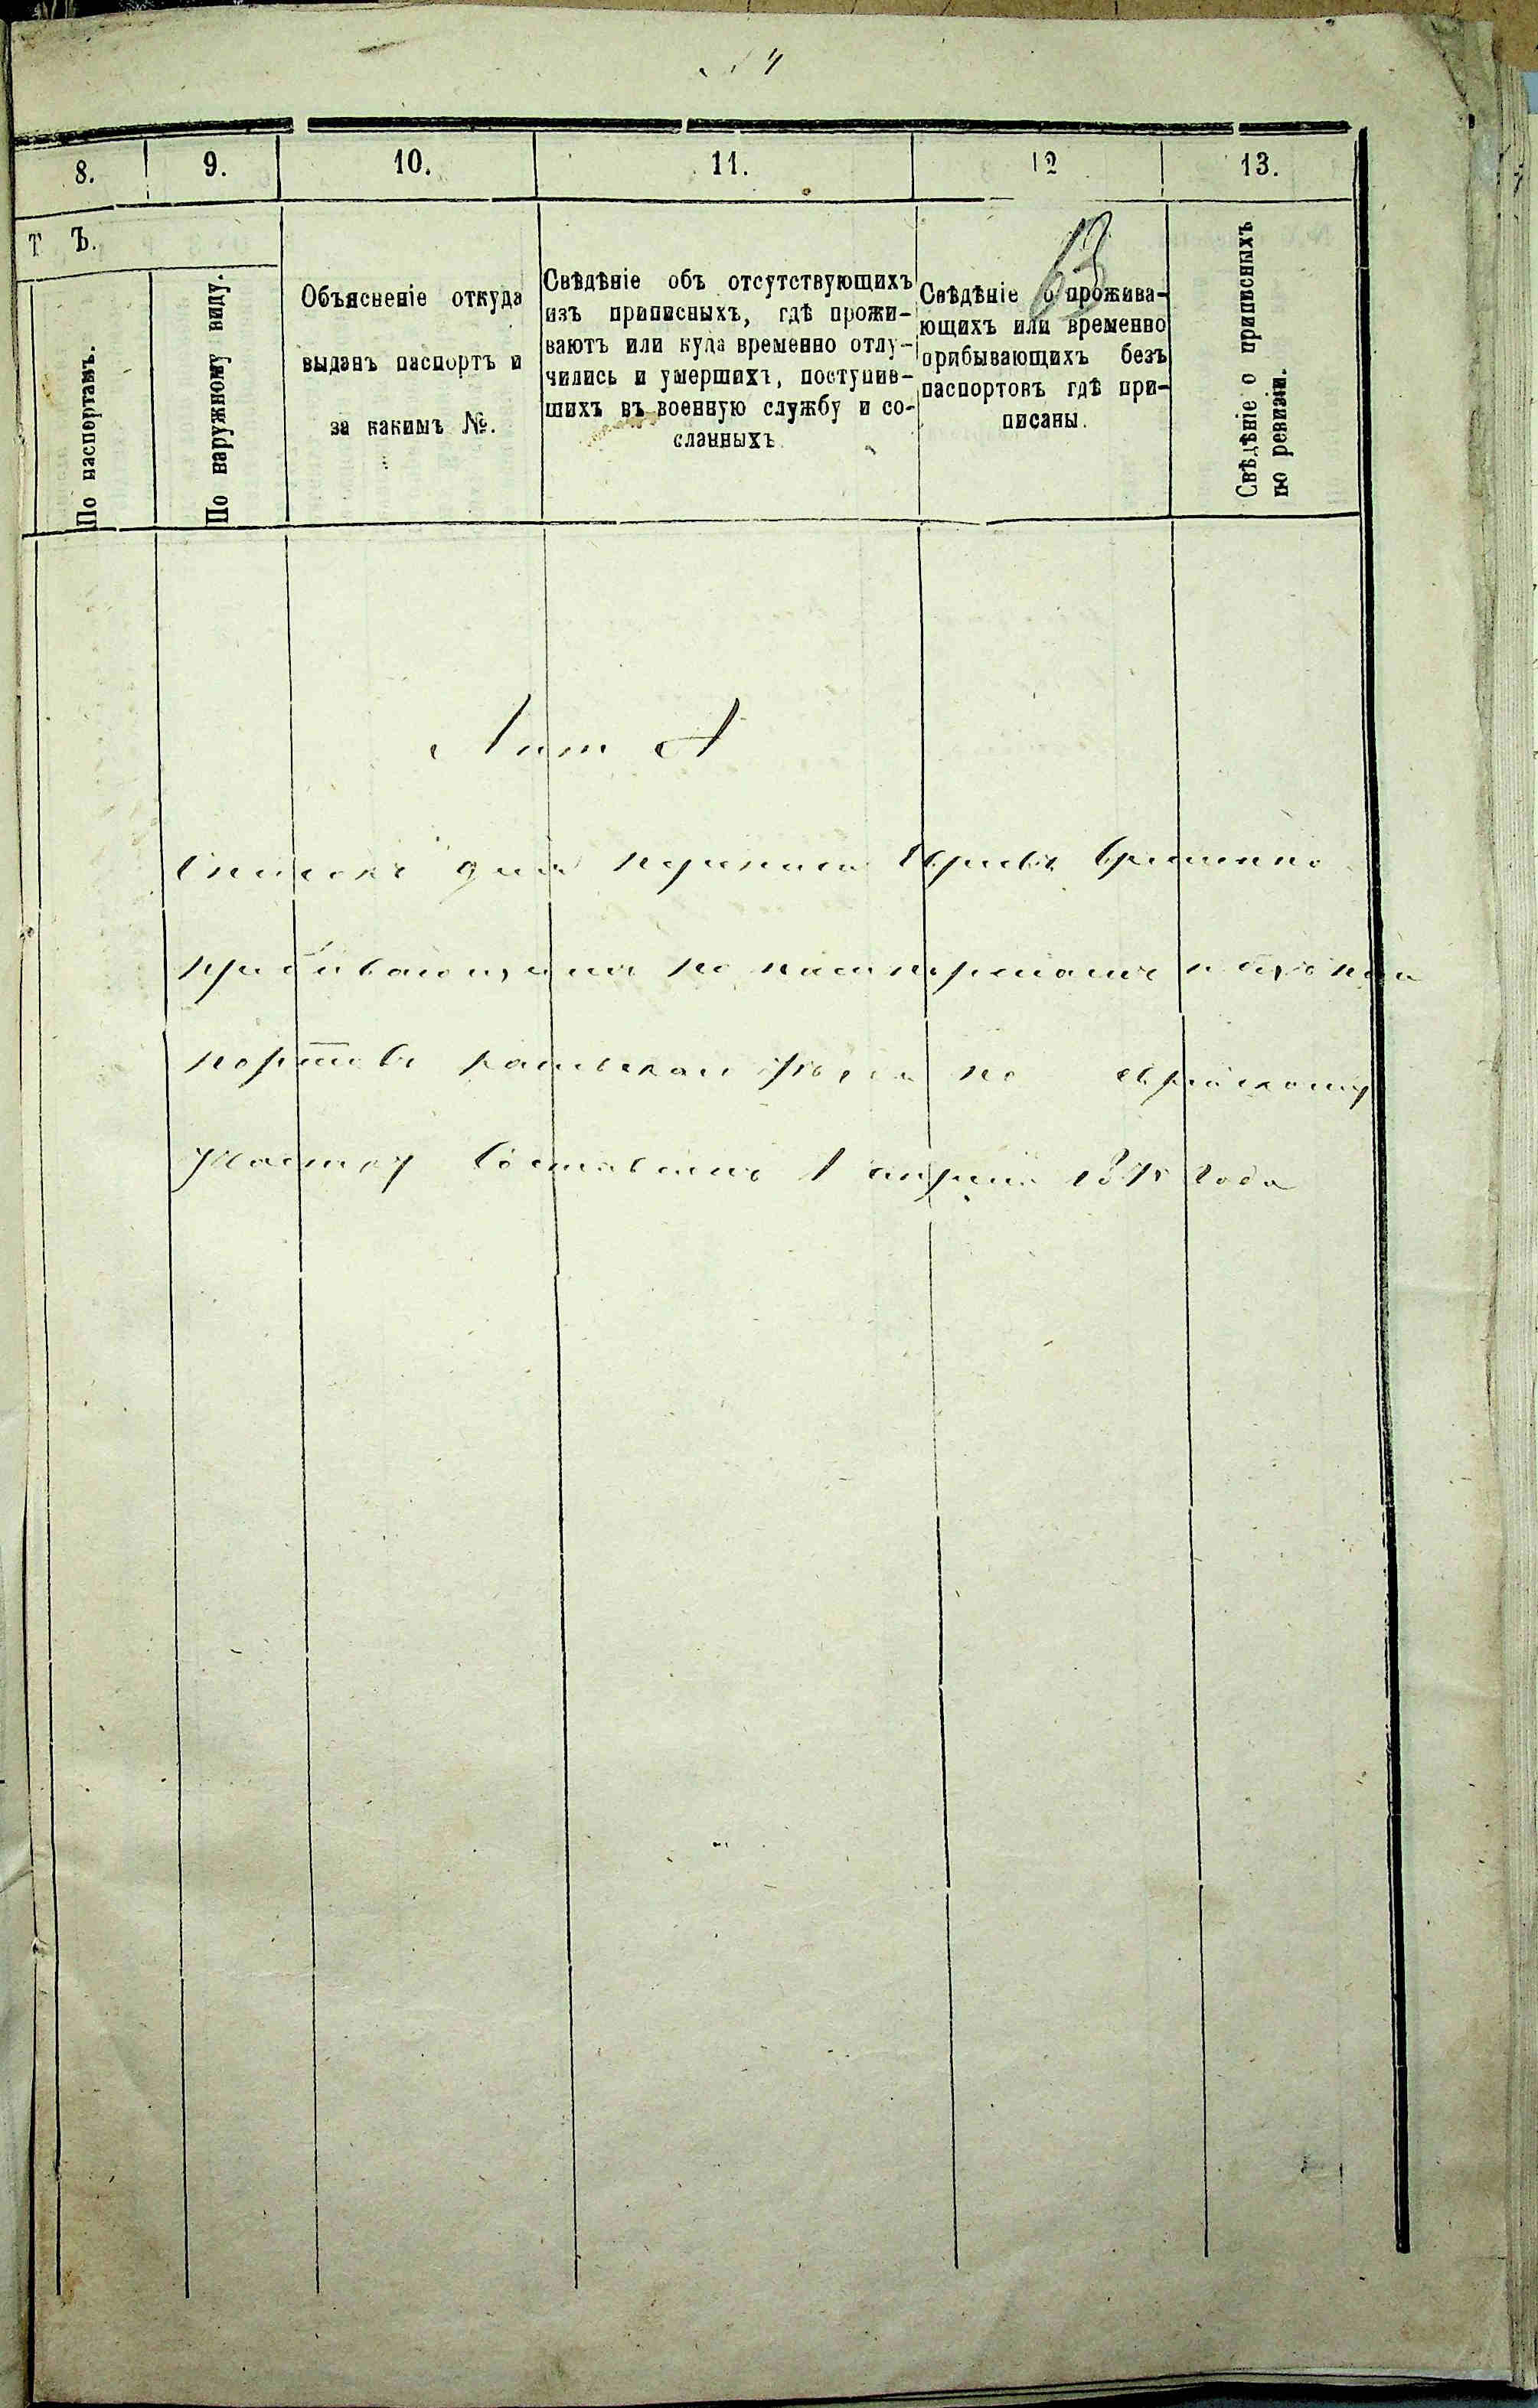 8. 9. 10. 11. 12 13.
Т Ъ.
По паспортамъ.
По наружному виду.
Объясненіе откуда
выданъ паспортъ и
за какимъ №.
Свѣдѣніе объ отсутствующихъ
изъ приписныхъ, гдѣ прожи-
ваютъ или куда временно отлу-
чились и умершихъ, поступив-
шихъ въ военную службу и со-
сланныхъ
63
Свѣдѣніе о прожива-
ющихъ или временно
прибывающихъ безъ
паспортовъ гдѣ при-
писаны.
Свѣдѣніе о приписныхъ
по ревизіи.
Лит А
Списокъ для переписи Евреевъ временно
по
портовъ по еврейскому
участку Составленъ 1 апреля 1875 года